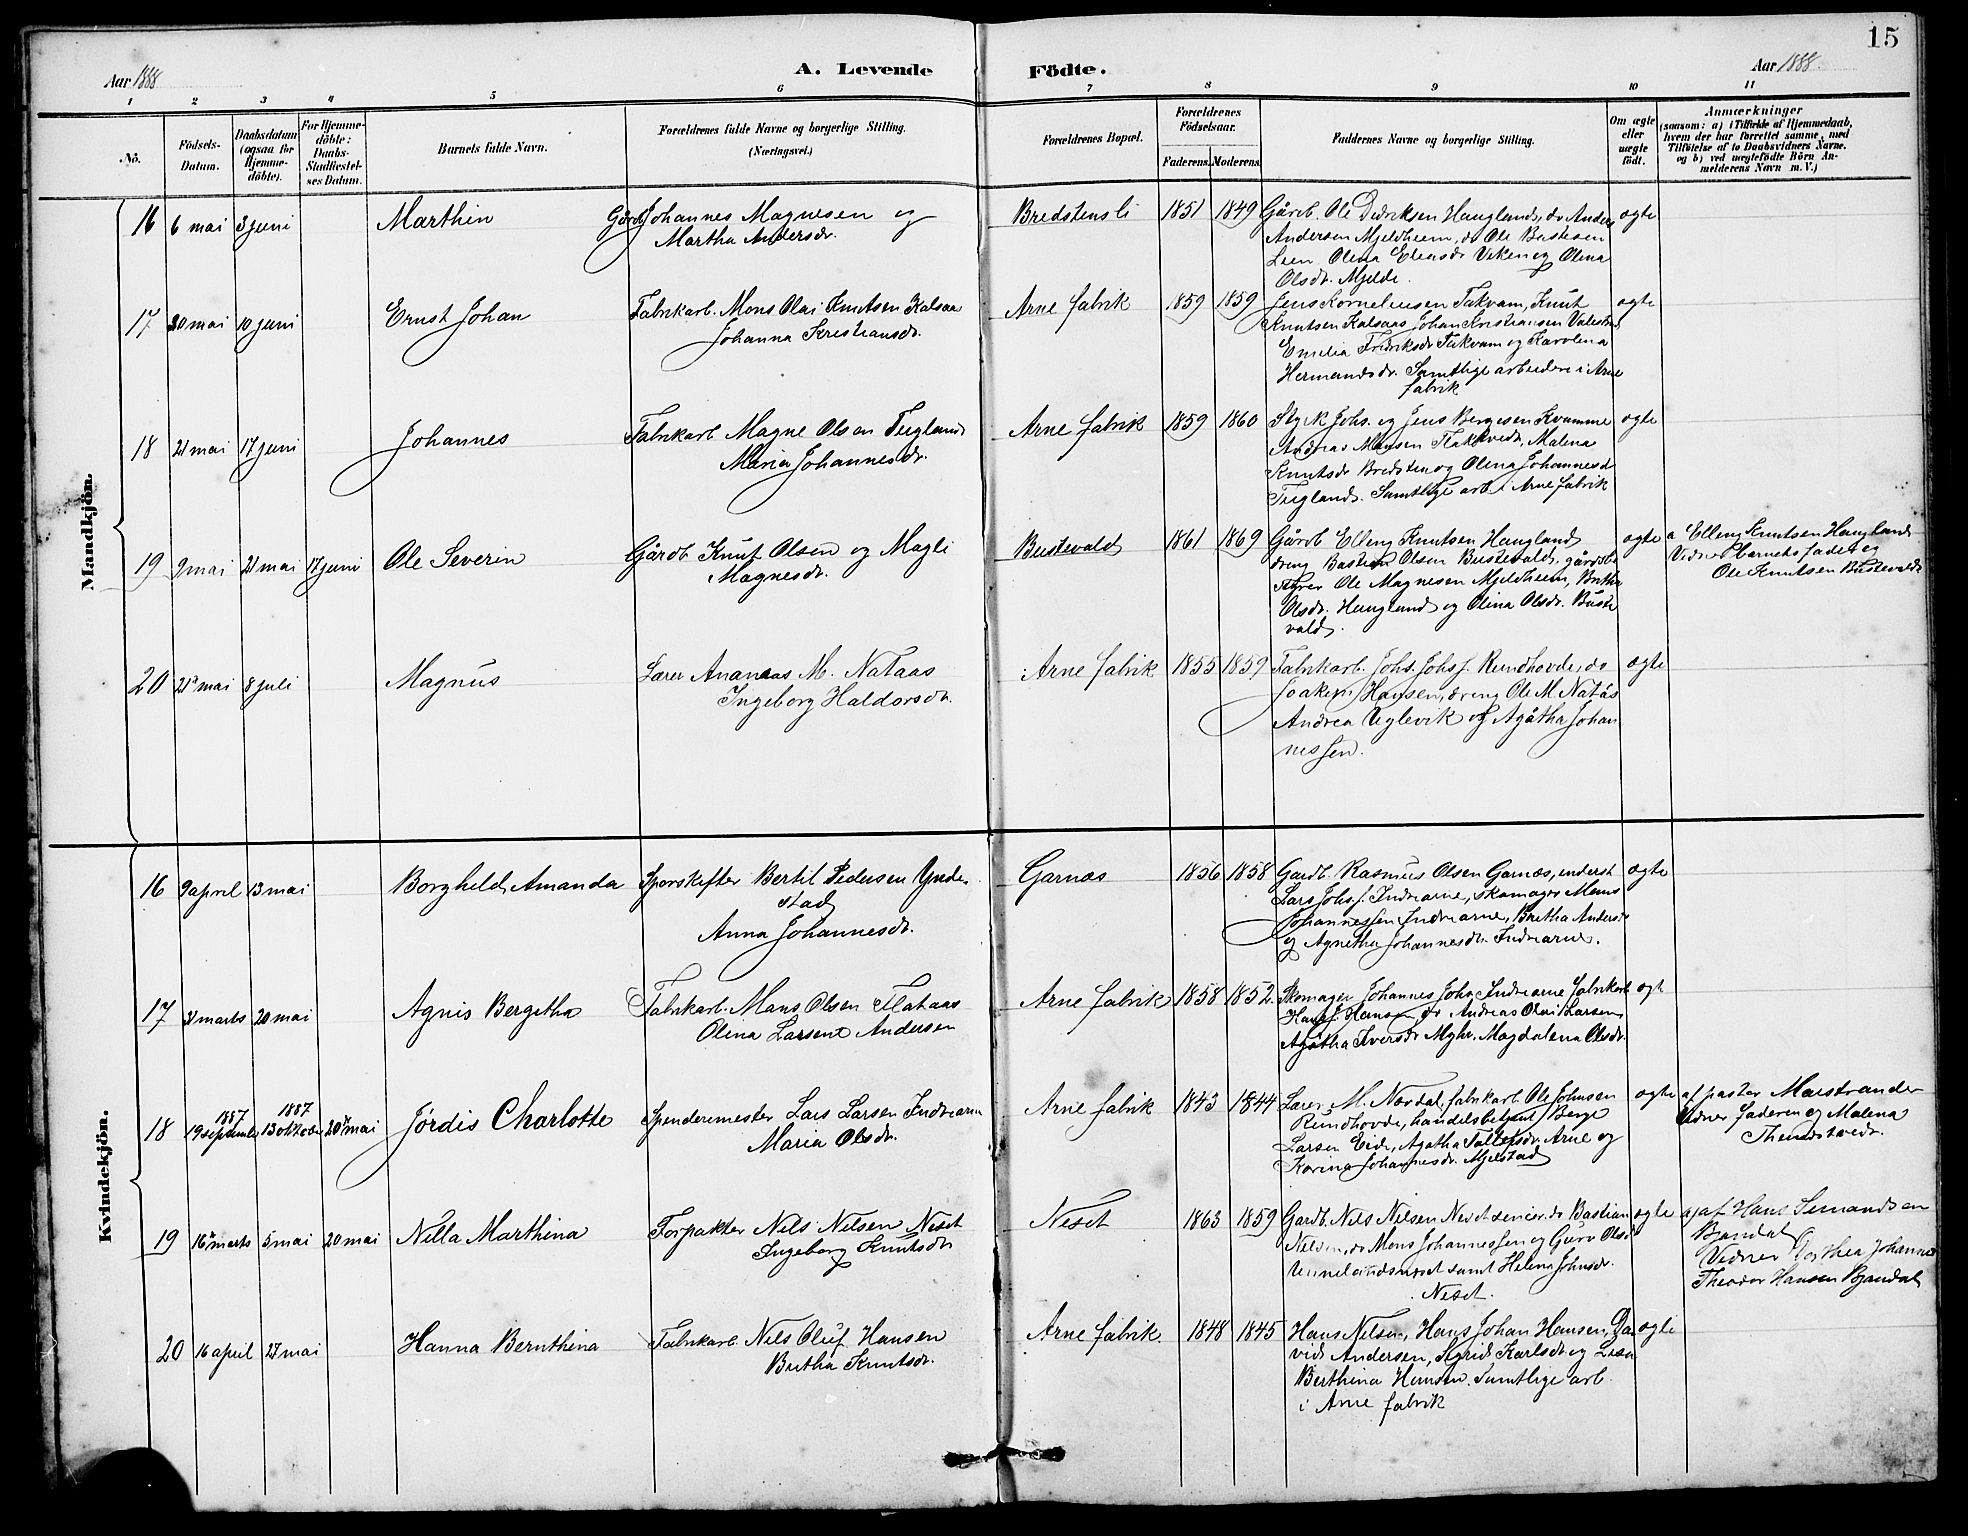 15
Aar 1888
A. Levende Födte.
Aar 1888.
1 2 3 4 5 6 7 8 9 10 11
No.
Födsels-
Datum.
Daabsdatum
(ogsaa for
Hjemme-
döbte).
For Hjemme-
döbte:
Daabs-
Stadfæstel-
ses Datum.
Barnets fulde Navn.
Forældrenes fulde Navne og borgerlige Stilling.
(Næringsvei.)
Forældrenes Bopæl.
Forældrenes
Födselsaar.
Faderens. Moderens.
Faddernes Navne og borgerlige Stilling.
Om ægte
eller
uægte
födt.
Anmærkninger
(saasom: a) i Tilfælde af Hjemmedaab,
hvem der har forrettet samme, med
Tilföielse af to Daabsvidners Navne.
og b) ved uægtefödte Börn An-
melderens Navn m. V.)
Mandkjön.
16 6 mai 3 juni Marthin
Gårdb Johannes Magnesen og
Martha Andersdr.
Bredstensli 1851 1849
Gårb. Ole Didriksen Haugland, do Anders
Andersen Mjeldheim, do Ole Bastesen
Leen Olina Eliasdr Viken og Olina
Olsdr. Mjelde.
ægte
17 20 mai 10 juni Ernst Johan
Fabrikarb. Mons Olai Knutsen Kalsaa
Johanna Kristiansdr.
Arne fabrik 1859 1859
Jens Korneliussen Takvam, Knut
Knutsen Kalsaas Johan Kristiansen
Emilia Fredriksdr Takvam og Karolina
Hermandsdr. Samtlige arbeidere i Arne
fabrik
ægte
18 21 mai 17 juni Johannes
Fabrikarb Magne Olsen Tugland
Maria Johannesdr.
Arne fabrik 1859 1860
Styrk Johs. og Jens Børgesen Kvamme
Andreas Monsen Flaktvedt, Malena
Knutsdr Bredsten og Olina Johannesd
Tuglands. Samtlige arb i Arne fabrik
ægte
19 9 mai 21 mai 17 juni Ole Severin
Gårdb Knut Olsen og Magli
Magnesdr.
Bustevald 1861 1869
Gårdb Elling Knutsen Haugland
dreng Bastian Olsen Bustevald, gårdbe
styrer Ole Magnesen Mjeldheim, Britha
Olsdr. Haugland og Olina Olsdr. Buste
vald.
ægte
a Elling Knutsen Haugland
Vidner Barnets fader og
Ole Knutsen Bustevald
20 21de mai 8 juli Magnus
Lærer Ananias M. Nataas
Ingeborg Haldorsdr.
Arne fabrik 1855 1859
Fabrikarb. Johs. Johs f. Rundhovde, do
Joakim Hansen, dreng Ole M. Natås
Andrea Uglevik og Agåtha Johan
nessen.
ægte
Kvindekjön.
16 9 april 13 mai Borghild, Amanda
Sporskifter Bertil Pedersen Ynde
stad
Anna Johannesdr.
Garnæs 1856 1858
Gardb. Rasmus Olsen Garnæs, inderst
Lars Johs f. Indrearne, skomager Mons
Johannessen Indrearne, Britha Andersd
og Agnetha Johannesdr. Indrearne.
ægte
17 31 marts 20 mai Agnis Bergitha
Fabrikarb. Mons Olsen Flataas
Olina Larsine Andersen
Arne fabrik 1858 1852
Skomager Johannes Johs Indrearne fabrikarb
Hans J. Hansen, do Andreas Olai Larsen
Agåtha Iversdr Myhr. Magdalena Olsdr.
ægt
18 1887 19 septemb 1887 13 oktober 20de mai Jørdis Charlotte
Spindemester Lars Larsen Indrearne
Maria Olsdr.
Arne fabrik 1843 1844
Lærer M. Nordal, fabrikarb. Ole Johnsen
Rundhovde, handelsbetjent Børge
Larsen Eide, Agatha Tollefsdr Arne og
Korina Johannesdr. Mjelstad
ægte
af pastor Maistrander
Vidner faderen og Malena
19 16 marts 5 mai 20 mai Nilla Marthina
Forpakter Nils Nilsen Neset
Ingeborg Knutsdr
Neset 1863 1859
Gardb. Nils Nilsen Neset senior. do Bastian
Nilsen, do Mons Johannessen og Guro Olsd
samt Helena Johnsdr.
Neset.
ægte
a) af Hans Simonsen
Bjøndal
Vidner Dorthea Johannes
Theodor Hansen Bjøndal
20 16 april 27 mai Hanna Bernthina
Fabrikarb. Nils Oluf Hansen
Britha Knutsdr.
Arne fabrik 1848 1845
Hans Nilsen, Hans Johan Hansen, Da
vid Andersen, Sigrid Karlsdr og Lisa
Berthina Hansen. Samtlige arb.
i Arne fabrik
ægte